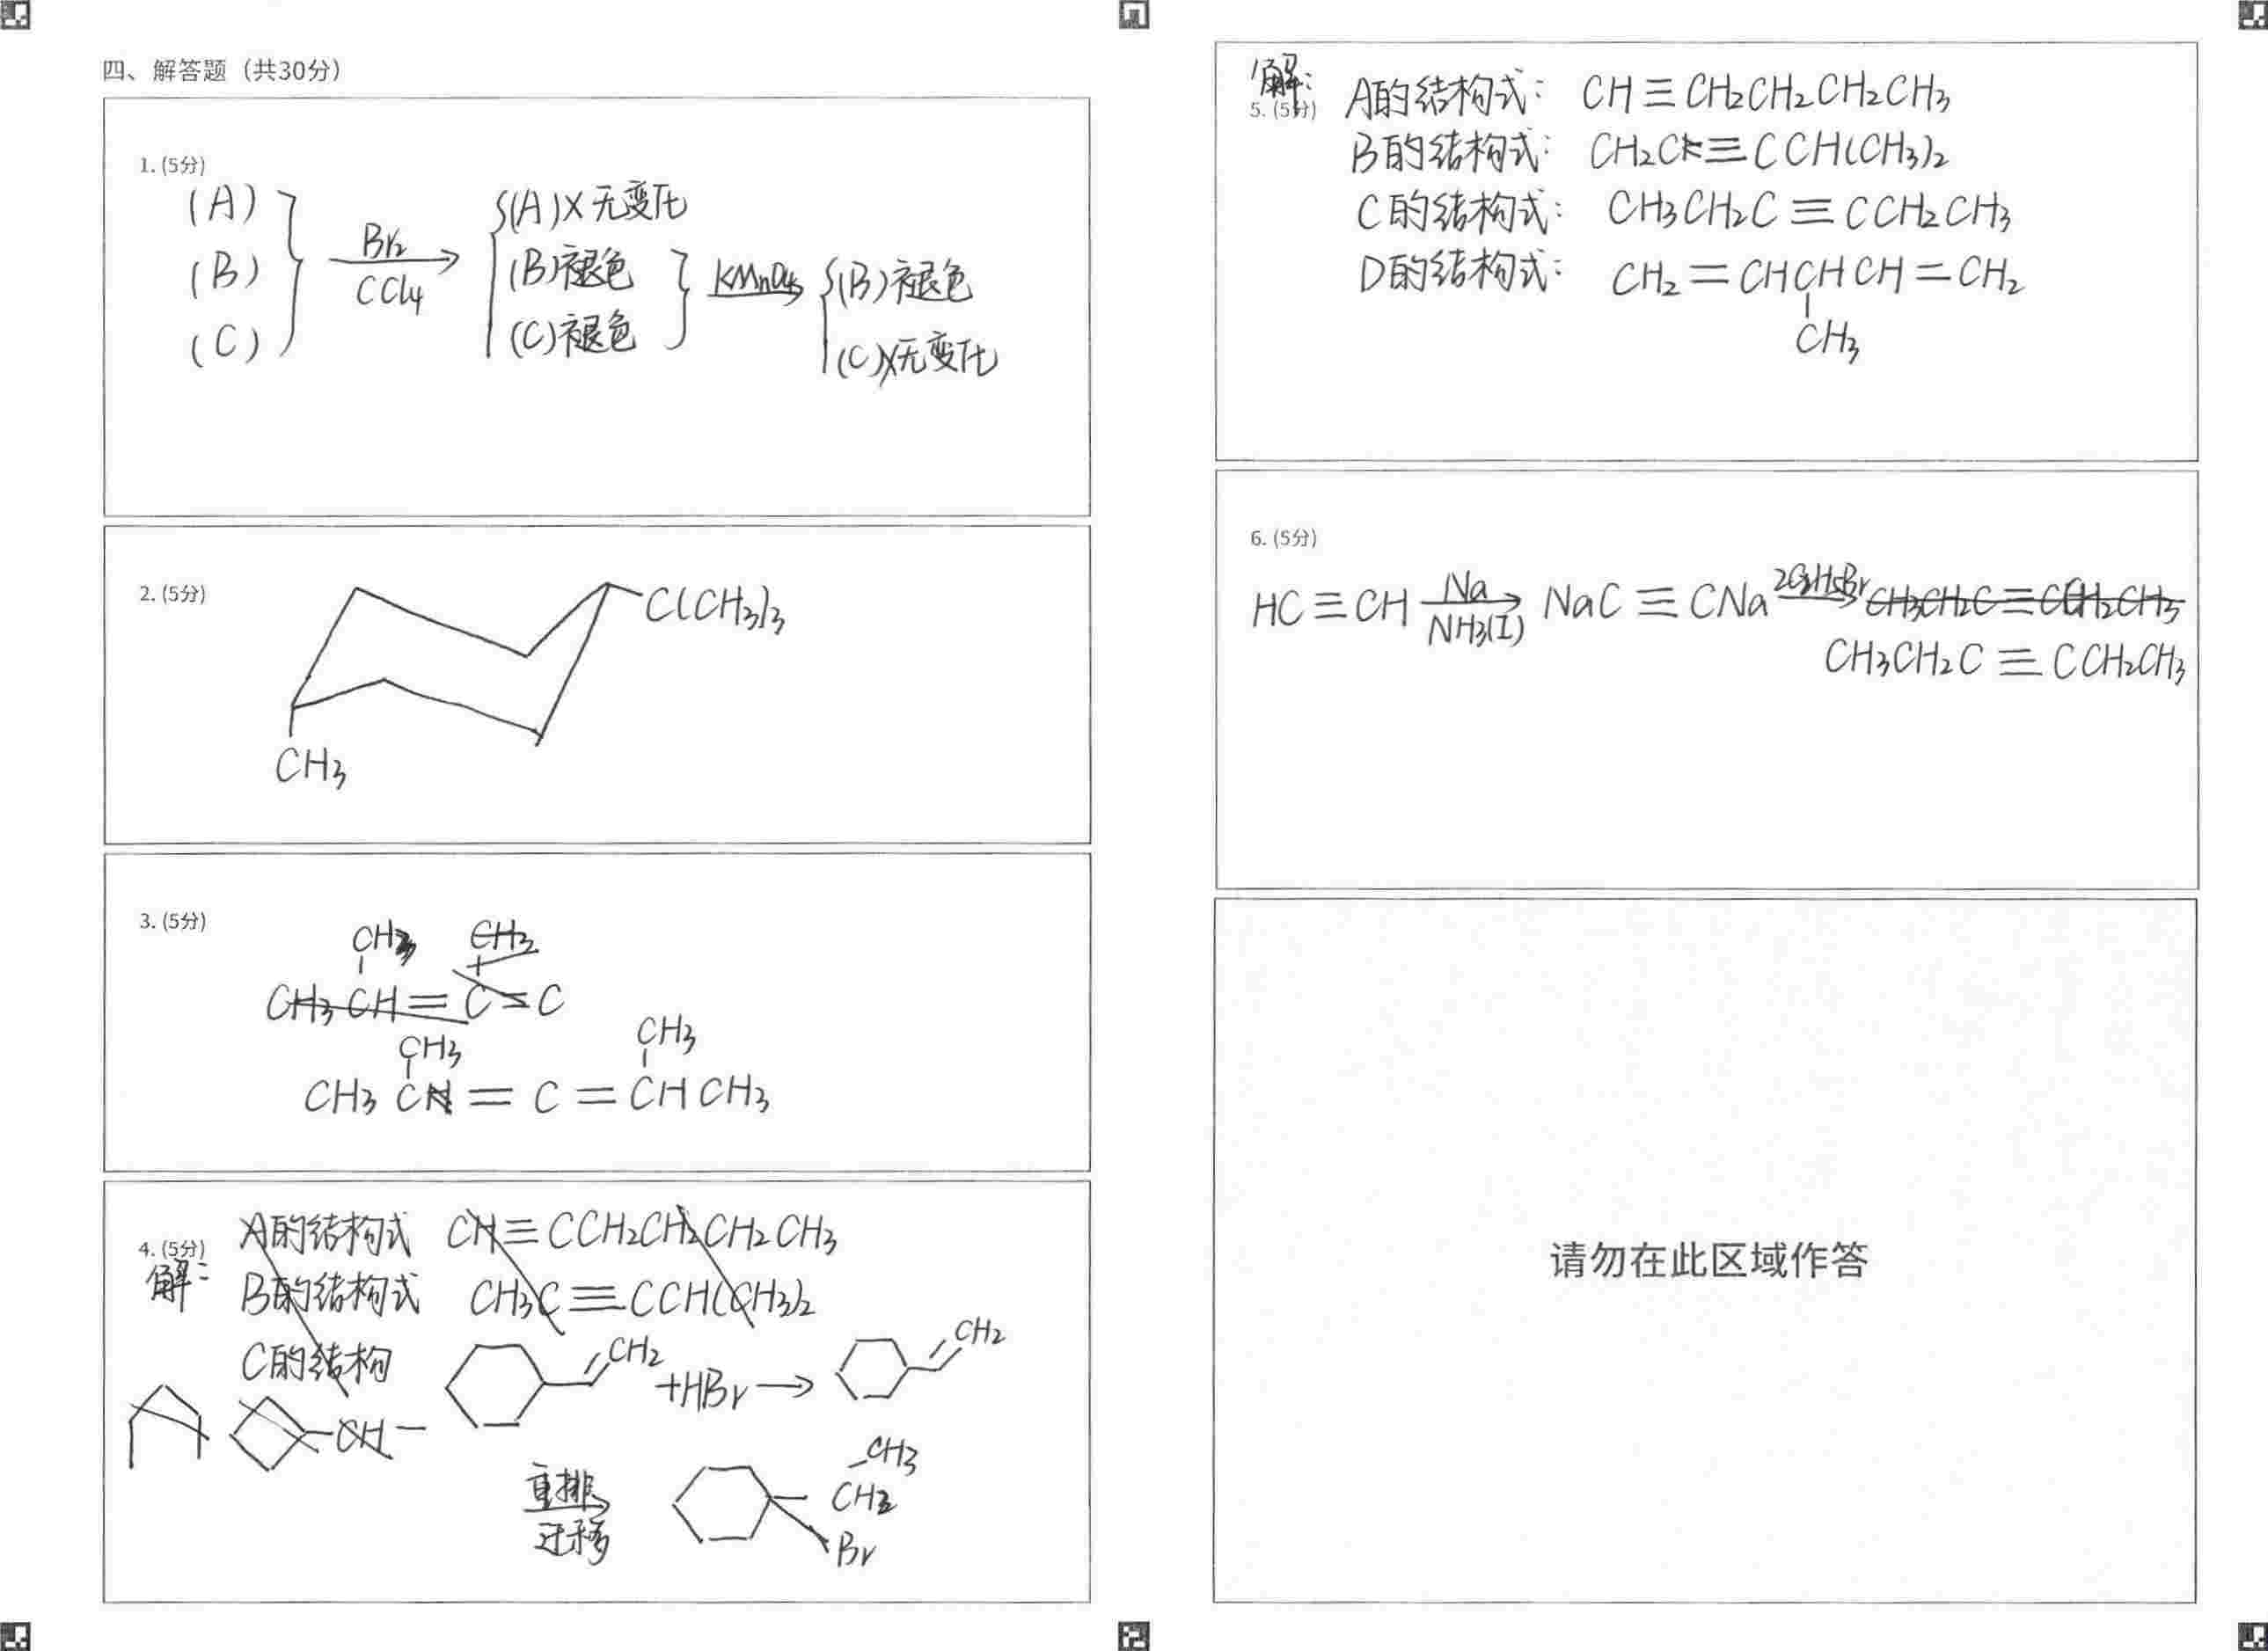 四、解答题（共30分）
1. (5分)
(A)
(B)
(C)
Br₂
CCl₄
(A)X 无变化
(B)褪色
(C)褪色
KMnO₄
(B)褪色
(C)X无变化
2. (5分)
C(CH₃)₃
CH₃
3. (5分)
CH₃ CH₂
CH₃CH=C=C
CH₃ CH₃
CH₃C=C=CHCH₃
4. (5分)
解:
A的结构式 CH≡CCH₂CH₂CH₂CH₃
B的结构式 CH₃C≡CCH(CH₃)₂
C的结构
CH₂ +HBr→ CH₂
CH–
重排
迁移
CH₃
CH₂
Br
解:
5. (5分)
A的结构式: CH≡CH₂CH₂CH₂CH₃
B的结构式: CH₂C≡CCH(CH₃)₂
C的结构式: CH₃CH₂C≡CCH₂CH₃
D的结构式: CH₂=CHCHCH=CH₂
CH₃
6. (5分)
HC≡CH Na NH₃(I) NaC≡CNa 2C₂H₅Br CH₃CH₂C≡CCH₂CH₃
CH₃CH₂C≡CCH₂CH₃
请勿在此区域作答